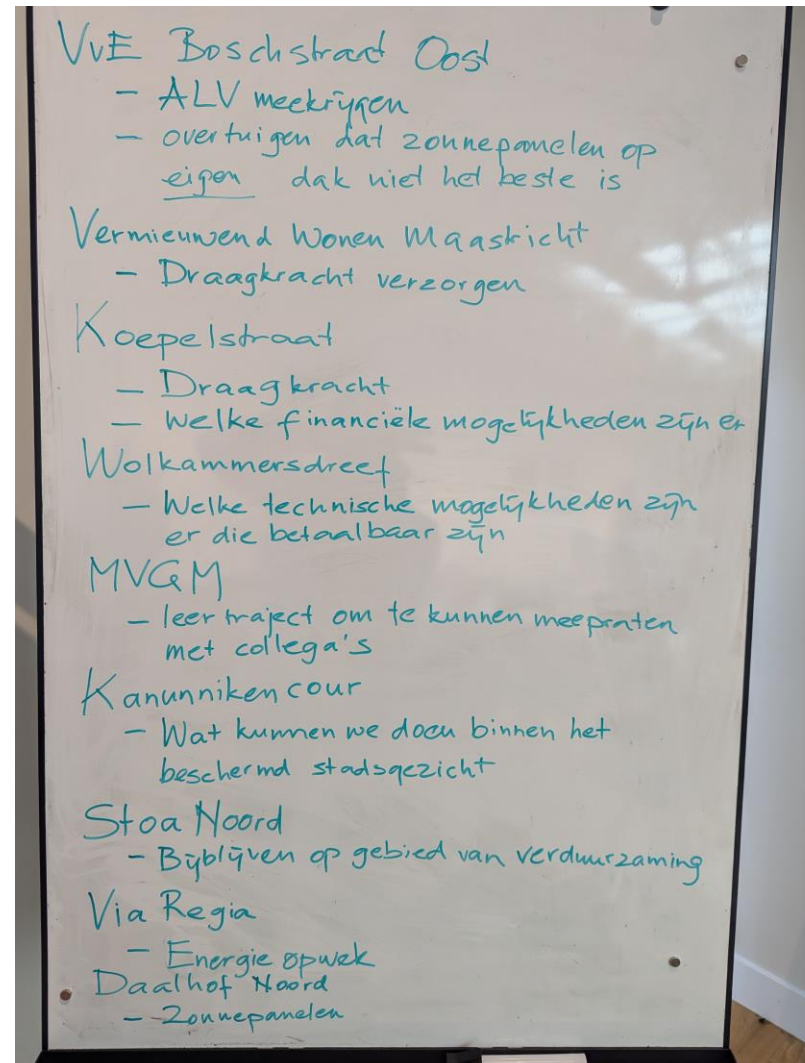 VvE Boschstraat Oost
- ALV meekrijgen
- overtuigen dat zonnepanelen op
eigen dak niet het beste is
Vernieuwend Wonen Maastricht
- Draagkracht verzorgen
Koepelstraat
- Draagkracht
- Welke financiële mogelijkheden zijn er
Wolkammersdreef
- Welke technische mogelijkheden zijn
er die betaalbaar zijn
MVGM
- leertraject om te kunnen meepraten
met collega's
Kanunnikencour
- Wat kunnen we doen binnen het
beschermd stadsgezicht
Stoa Noord
- Bijblijven op gebied van verduurzaming
Via Regia
- Energie opwek
Daalhof Noord
- Zonnepanelen